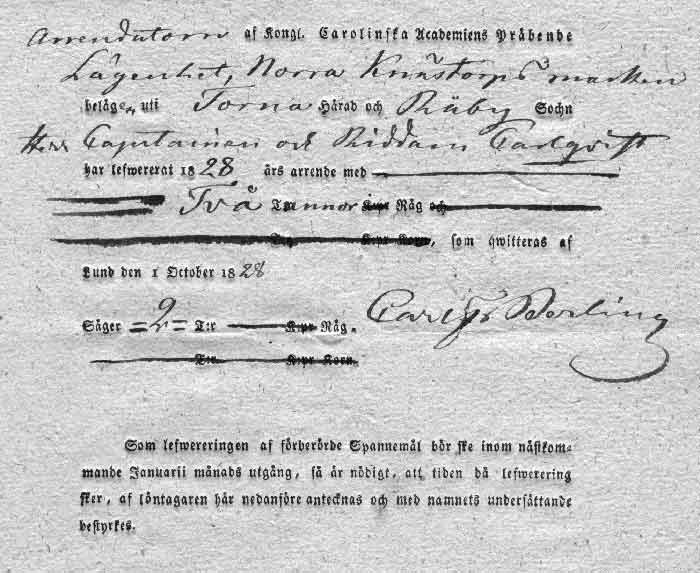 Arrendatorn af Kongl. Carolinska Academiens Präbende
Lägenhet, Norra Knästorps marken
belägen uti Torna Härad och Räby Sochn
Herr Capitainen och Riddaren Carlqvist
har lefwererat 1828 års arrende med
Två Tunnor K:pr Råg och
T:r K:pr Korn, som qwitteras af
Lund den 1 October 1828
Säger =2= T:r K:pr Råg.
Carl Fr Berling
T:r K:pr Korn.
Som lefwereringen af förberörde Spannemål bör ske inom nästkom-
mande Januarii månads utgång, så är nödigt, att tiden då lefwerering
sker, af löntagaren här nedanföre antecknas och med namnets undersättande
bestyrkes.